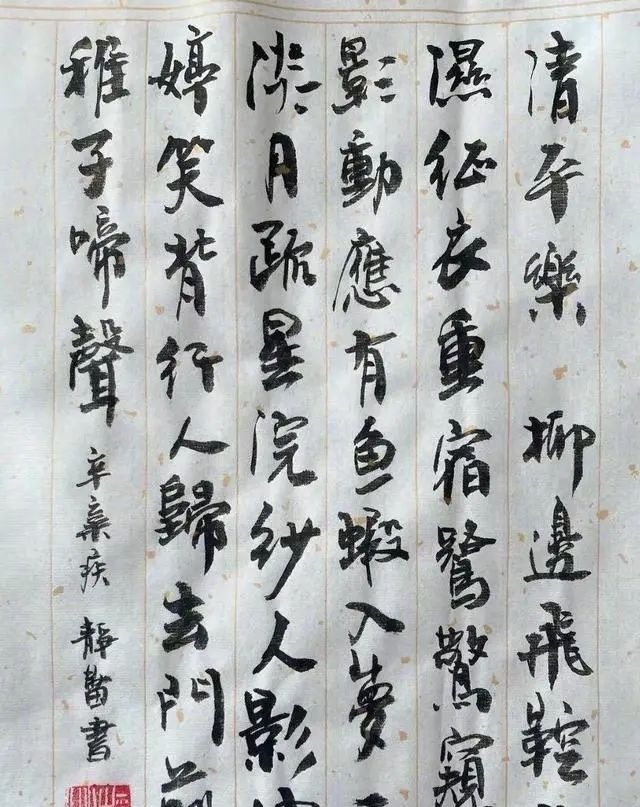 清平樂 柳邊飛鞚
濕征衣重宿鷺驚窺
影動應有鱼蝦入夢
淡月疏星浣紗人影
婷笑背行人歸去門前
稚子啼聲 辛棄疾 靜書